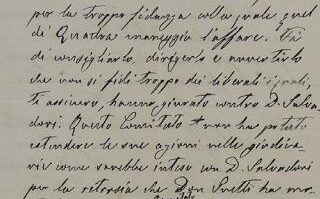 per la troppa fidanza colla quale quel
di Quadra maneggia l'affare. Fà
di consigliarlo, dirigerlo e avvertirlo
che non si fidi troppo dei liberali i quali,
ti assicuro, hanno giurato contro D. Salva-
dori. Questo Comitato non ha potuto
estendere le sue azioni nelle giudica-
rie come sarebbe inteso con D. Salvadori
per la ritrosia che Don Snetti ha mo-